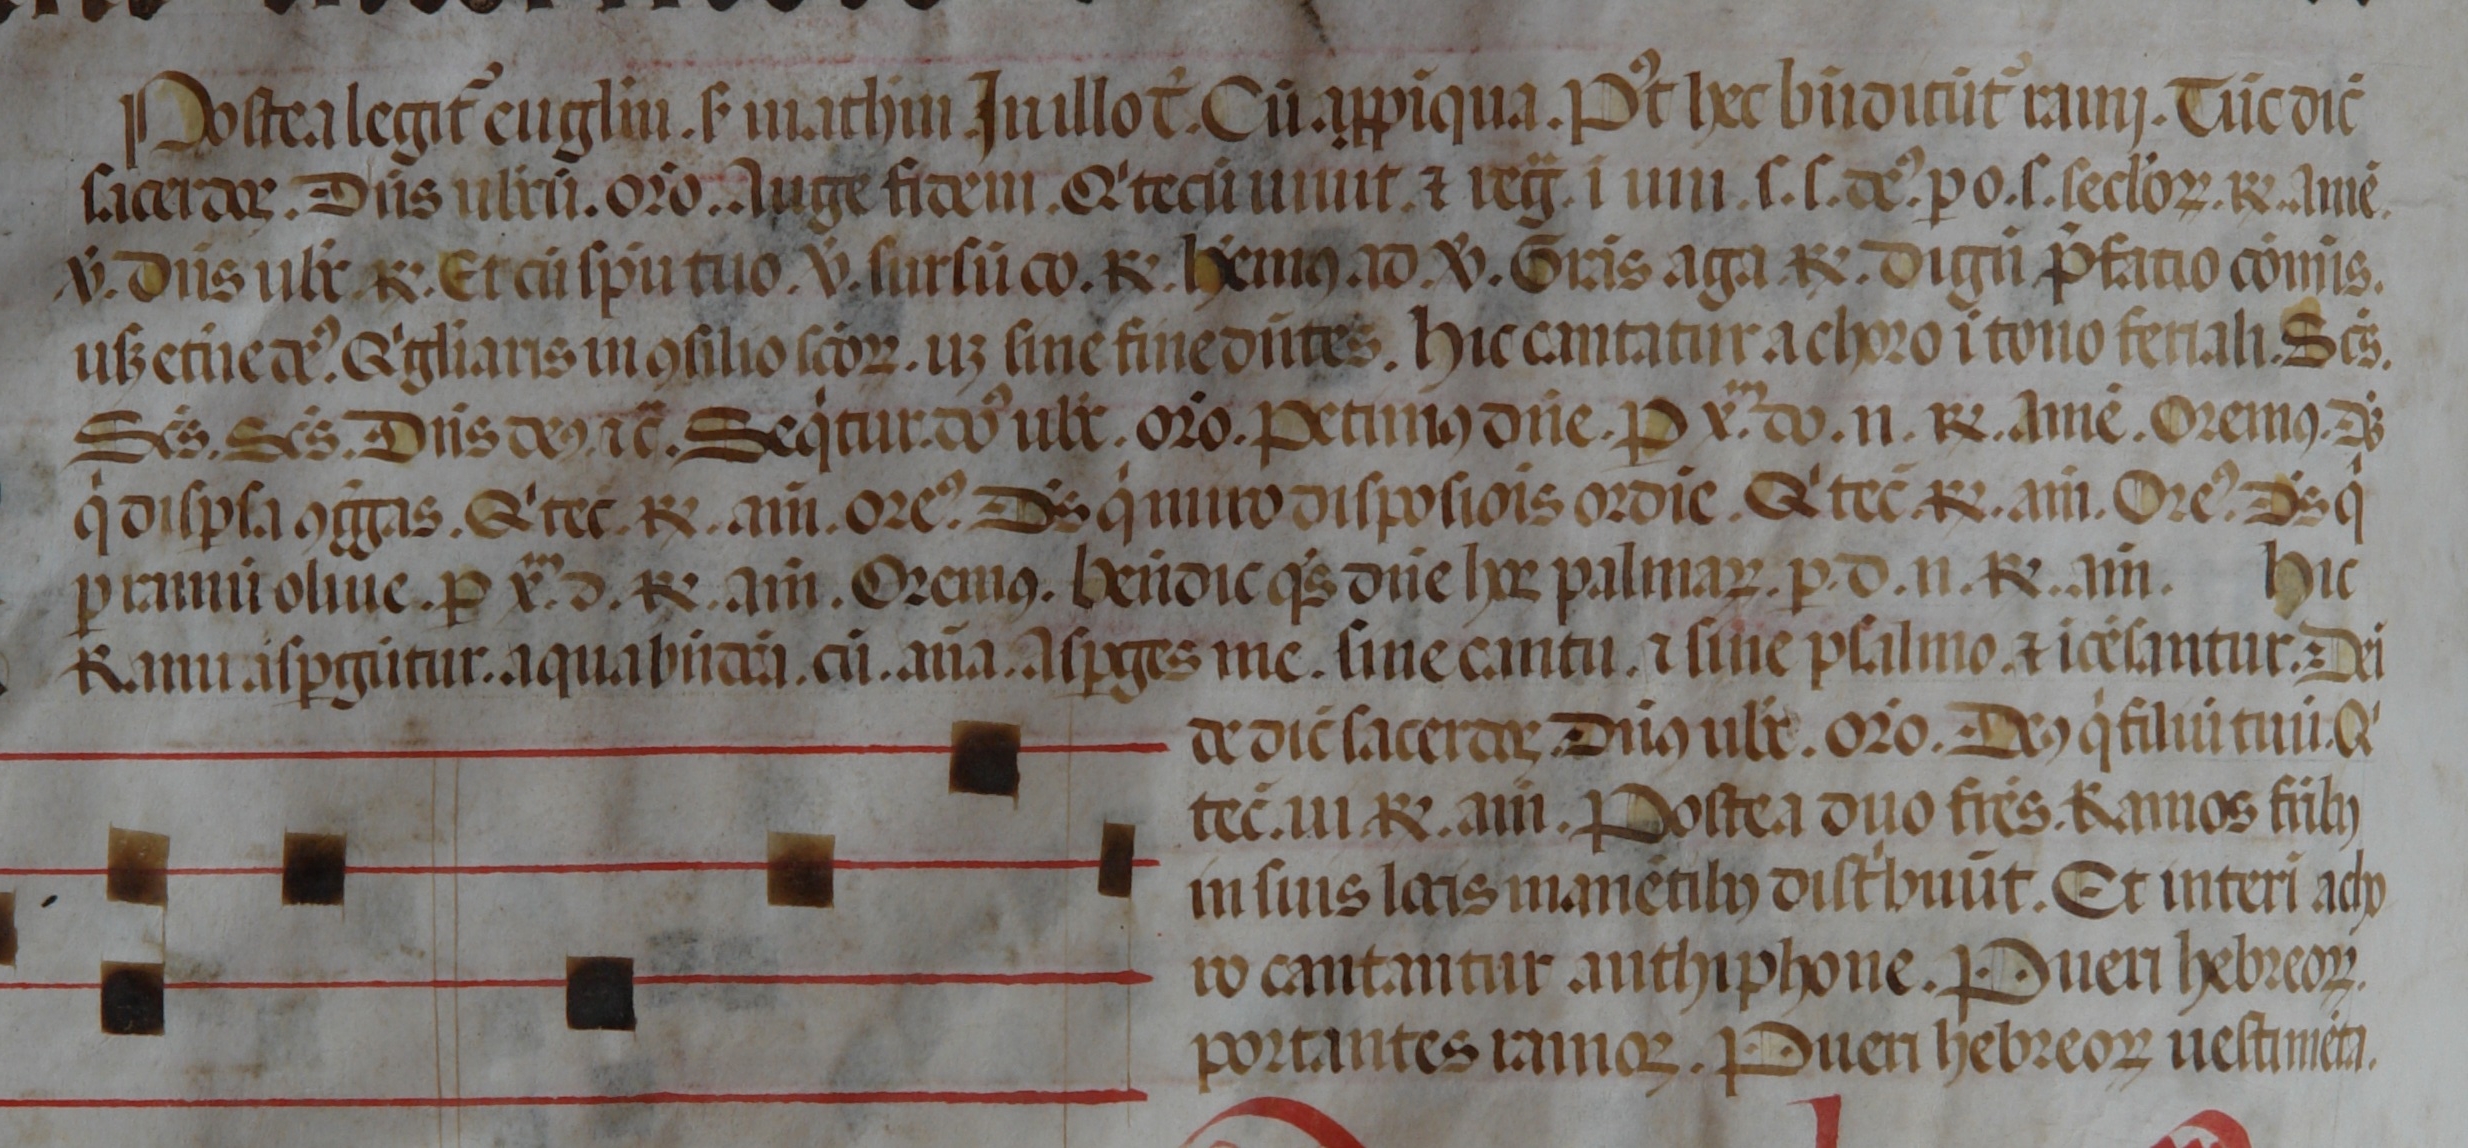 Postea legit᷑ euglm̄. ẜ mathm̄ In illo t̄. Cū app̄iqua. Pꝰt hec bn̄dicūt᷑ ramj. Tūc dic̄
sacerdoꝝ. Dn̄s ubcū. or̄o. Auge fidem. Qͥ tecū uiuit. ⁊ reg̅. ī uni. s. s. deꝰ. p o. s. secl̄oꝝ. ℟. amē.
℣. Dn̄s ubc̄. ℟. Et cū sp̄u tuo. ℣. sursū co. ℟. hēmꝰ. ad. ℣. Gr̄as aga ℟. Digū p̄fatio cōmīs.
usꝫ etn̄e deꝰ. Qͥ gl̄iaris in ꝯsilio sc̄oꝝ. uꝫ sine fine dn̄tes. hic cantatur a choro ī tono feriali. Sc̄s.
Sc̄s. Sc̄s. Dn̄s deꝰ. ⁊c̄. Seqͥtur. do᷒ ubc̄. or̄o. Petimꝰ dn̄e. ꝑ xᵐ. do. n. ℟. Amē. Oremꝰ. Ds̄
qͥ disꝑsa ꝯg̅gas. Qͥ tec̄. ℟. am̄. oreꝰ. Ds̄ qͥ miro disposiōis ordīe. Qͥ tec̄. ℟. am̄. Oreꝰ. Ds̄ qͥ
ꝑ ramū oliue. ꝑ xᵐ. d. ℟. am̄. Oremꝰ. bēndic qs̄ dn̄e hoꝝ palmaꝝ. p. d. n. ℟. am̄. hic
Rami asꝑgūtur. aqua bn̄dc̄a. cū. an̄a. Asꝑges me. sine cantu. ⁊ sine psalmo. ⁊ īcēsantur. Dei
de dic̄ sacerdoꝝ Dn̄ꝰ ubc̄. or̄o. Deꝰ qͥ filiū tuū. Qͥ
tec̄. ui ℟. am̄. Postea duo fr̄es. Ramos fr̄ibꝰ
in suis locis manētibꝰ distͥbuūt. Et interī a cho
ro cantantur anthiphone. Pueri hebreoꝝ.
portantes ramoꝝ. Pueri hebreoꝝ uestimēta.